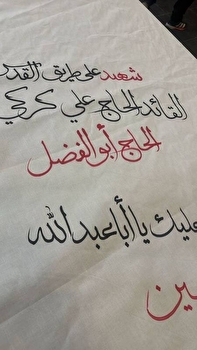 شهيد على طريق القدس
القائد الحاج علي كركي
الحاج أبو الفضل
عليك يا أبا عبد الله